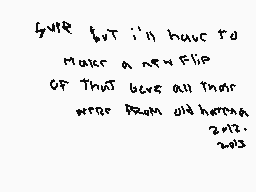 sure but i'll have to
make a new flip
of that becs all those
were from old hatena
2012.
2013